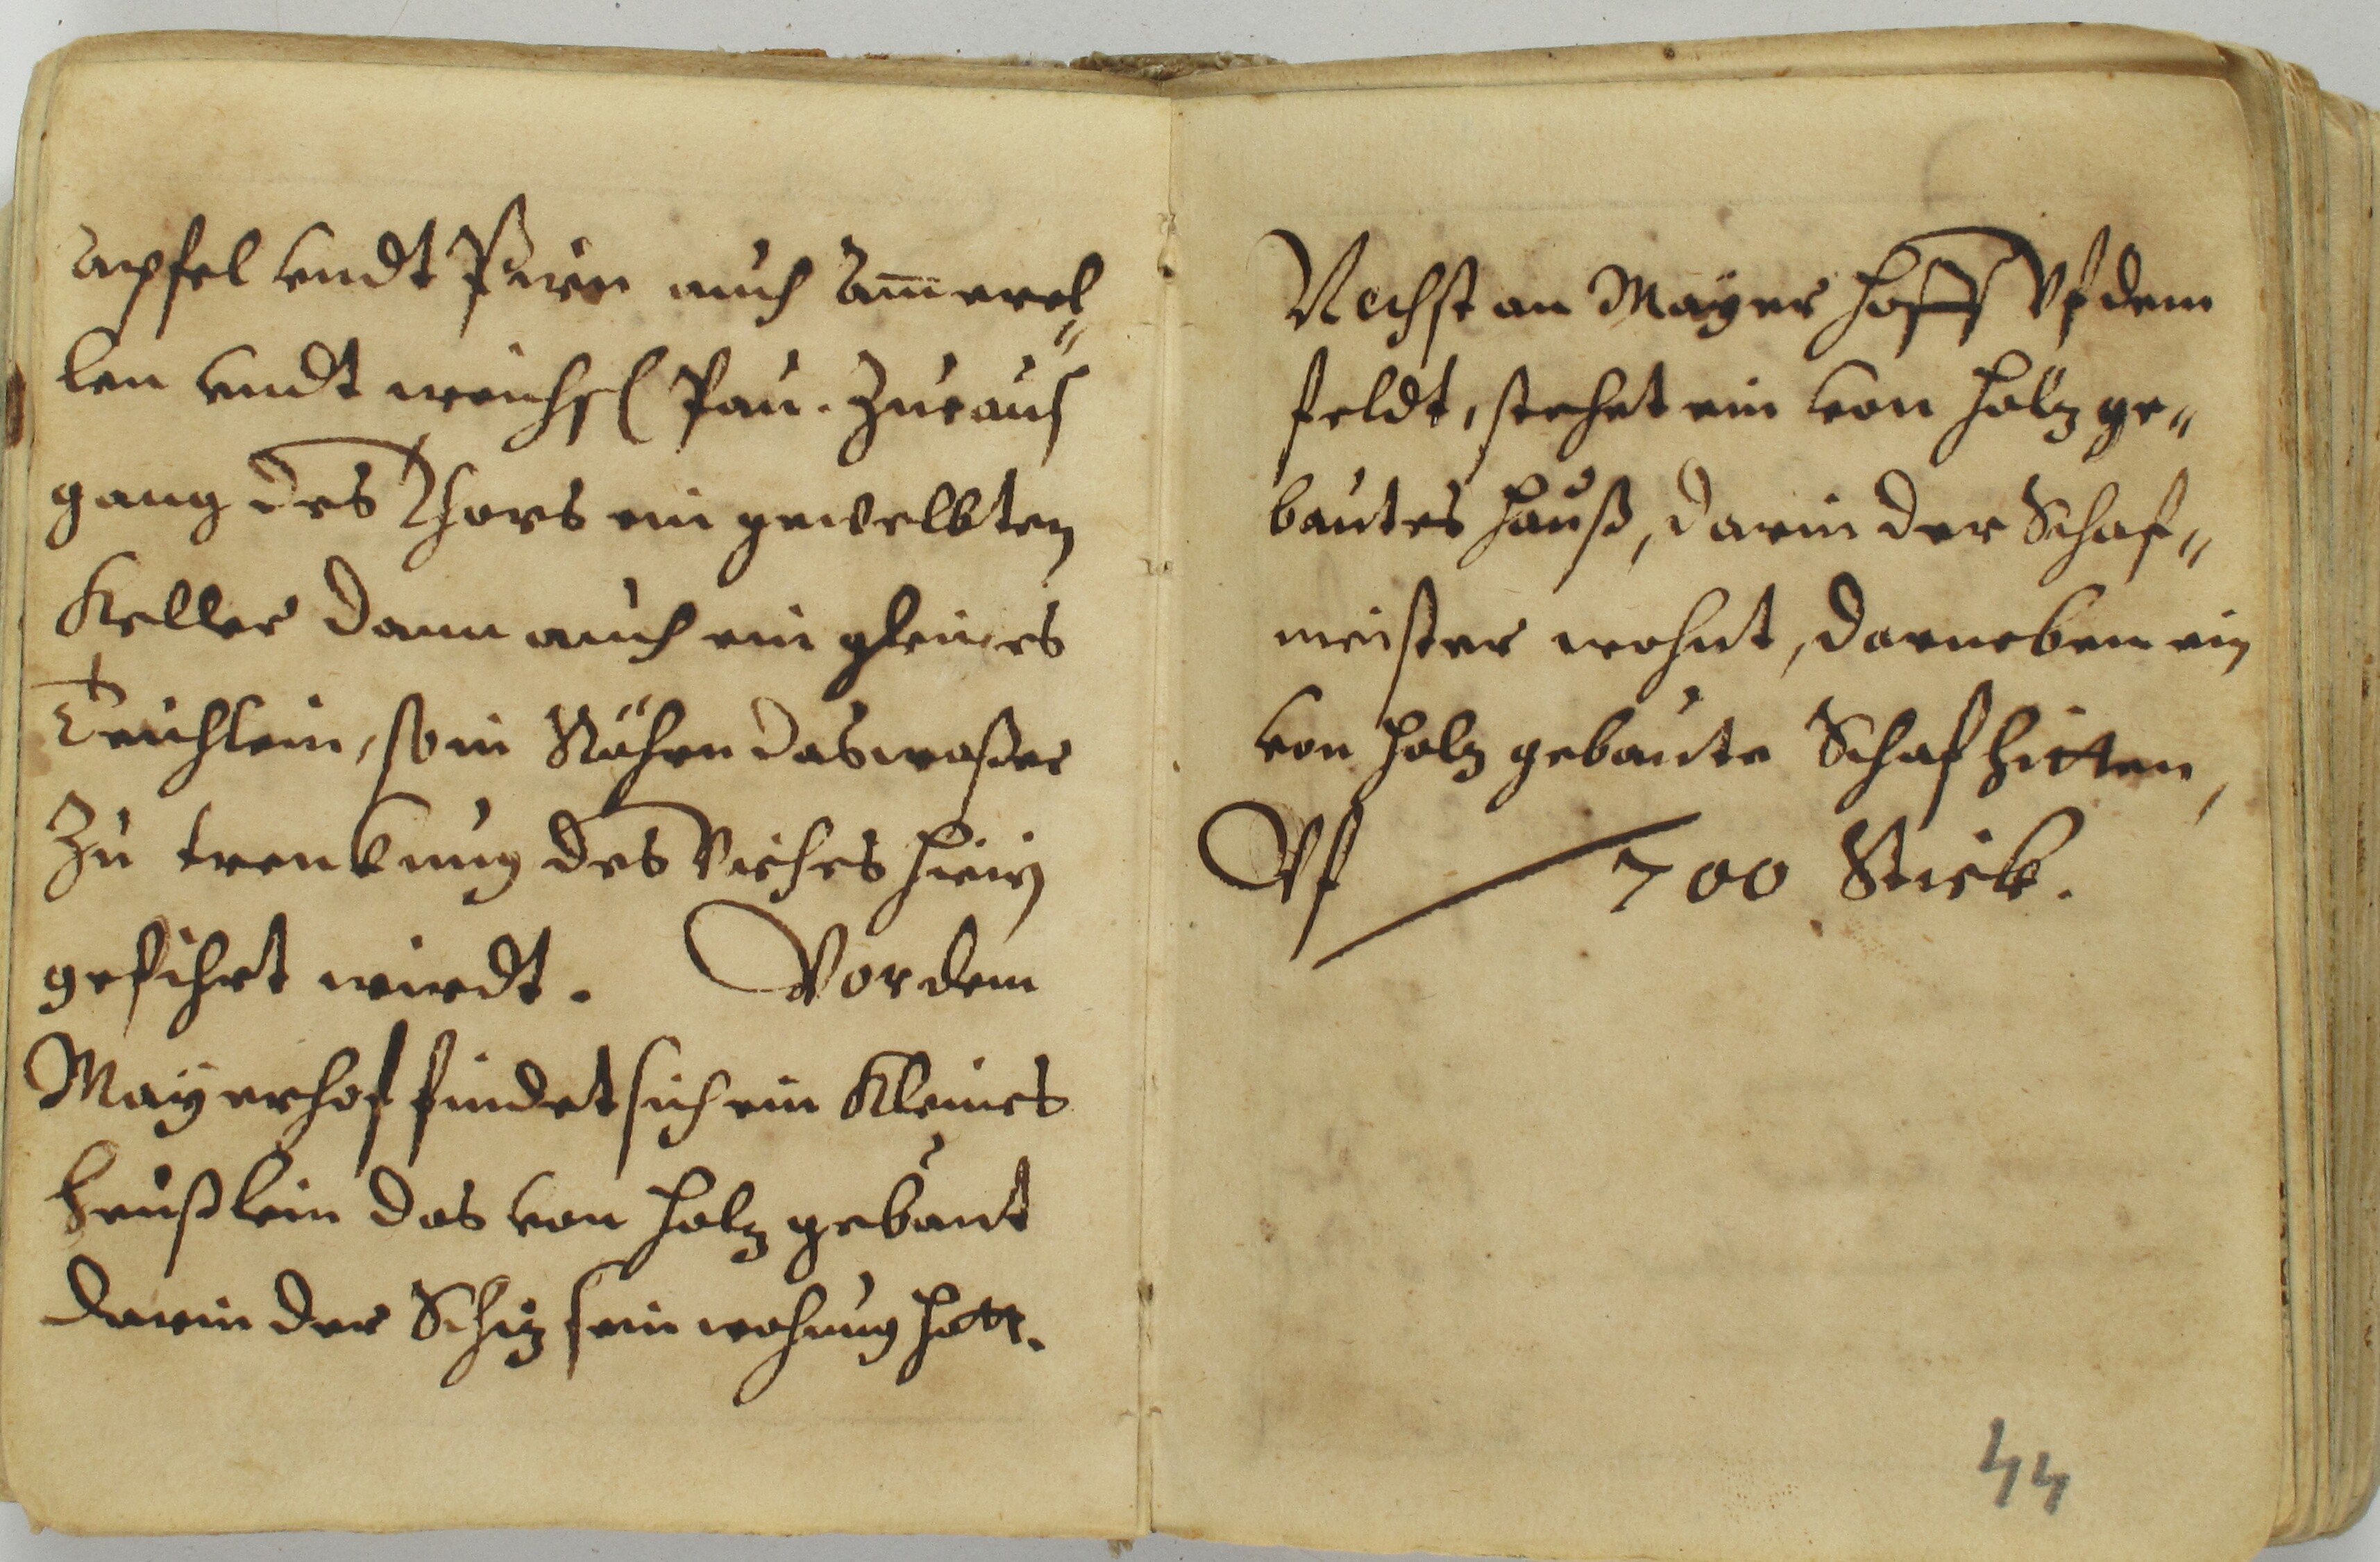 Apfel vndt Pirn auch Am̄erel„
len vndt weichsel Pau. Zu eauß
gang des Thors ein gewelbten
Keller dann auch ein gleines
Teichlein, so in Röhrn das waßer
Zu trenkung des Viehes hiein
gefihrt wirdt. Vor dem
Mayerhof findet sich ein Kleines
heußlein das von holz gebaut
darin der Schiz sein wohnung hatt.
Nechst an Mayer hoff Vf dem
feldt, stehet ein von holz ge„
bautes hauß, darin der Schaf„
meister wohnt, darneben ein
von holz gebaute Schaf hitten,
Vf 700 Stick.
44